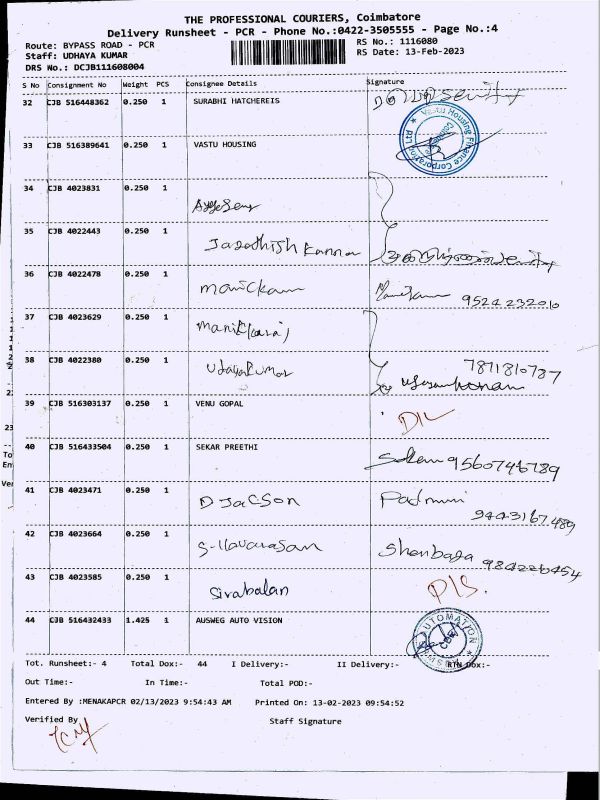 THE PROFESSIONAL COURIERS, Coimbatore
Delivery Runsheet - PCR - Phone No.:0422-3505555 - Page No.:4
Route: BYPASS ROAD - PCR RS No.: 1116080
Staff: UDHAYA KUMAR RS Date: 13-Feb-2023
DRS No.: DCJB111608004
S No Consignment No Weight PCS Consignee Details Signature
32 CJB 516448362 0.250 1 SURABHI HATCHEREIS
33 CJB 516389641 0.250 1 VASTU HOUSING Vastu Housing Finance Corporation Ltd
34 CJB 4023831 0.250 1
35 CJB 4022443 0.250 1 Jagathish Kannan
36 CJB 4022478 0.250 1 Manickam 9524232010
37 CJB 4023629 0.250 1
38 CJB 4022380 0.250 1 Udayakumar 7871810787
39 CJB 516303137 0.250 1 VENU GOPAL D/L
40 CJB 516433504 0.250 1 SEKAR PREETHI 9560746789
41 CJB 4023471 0.250 1 D Jacson Padmini
9443167489
42 CJB 4023664 0.250 1 S-Ilavarasan Shenbaga 984226454
43 CJB 4023585 0.250 1 Sivabalan
44 CJB 516432433 1.425 1 AUSWEG AUTO VISION AUTOMATION
Tot. Runsheet:- 4 Total Dox:- 44 I Delivery:- II Delivery:- RTN Dox:-
Out Time:- In Time:- Total POD:-
Entered By :MENAKAPCR 02/13/2023 9:54:43 AM Printed On: 13-02-2023 09:54:52
Verified By Staff Signature